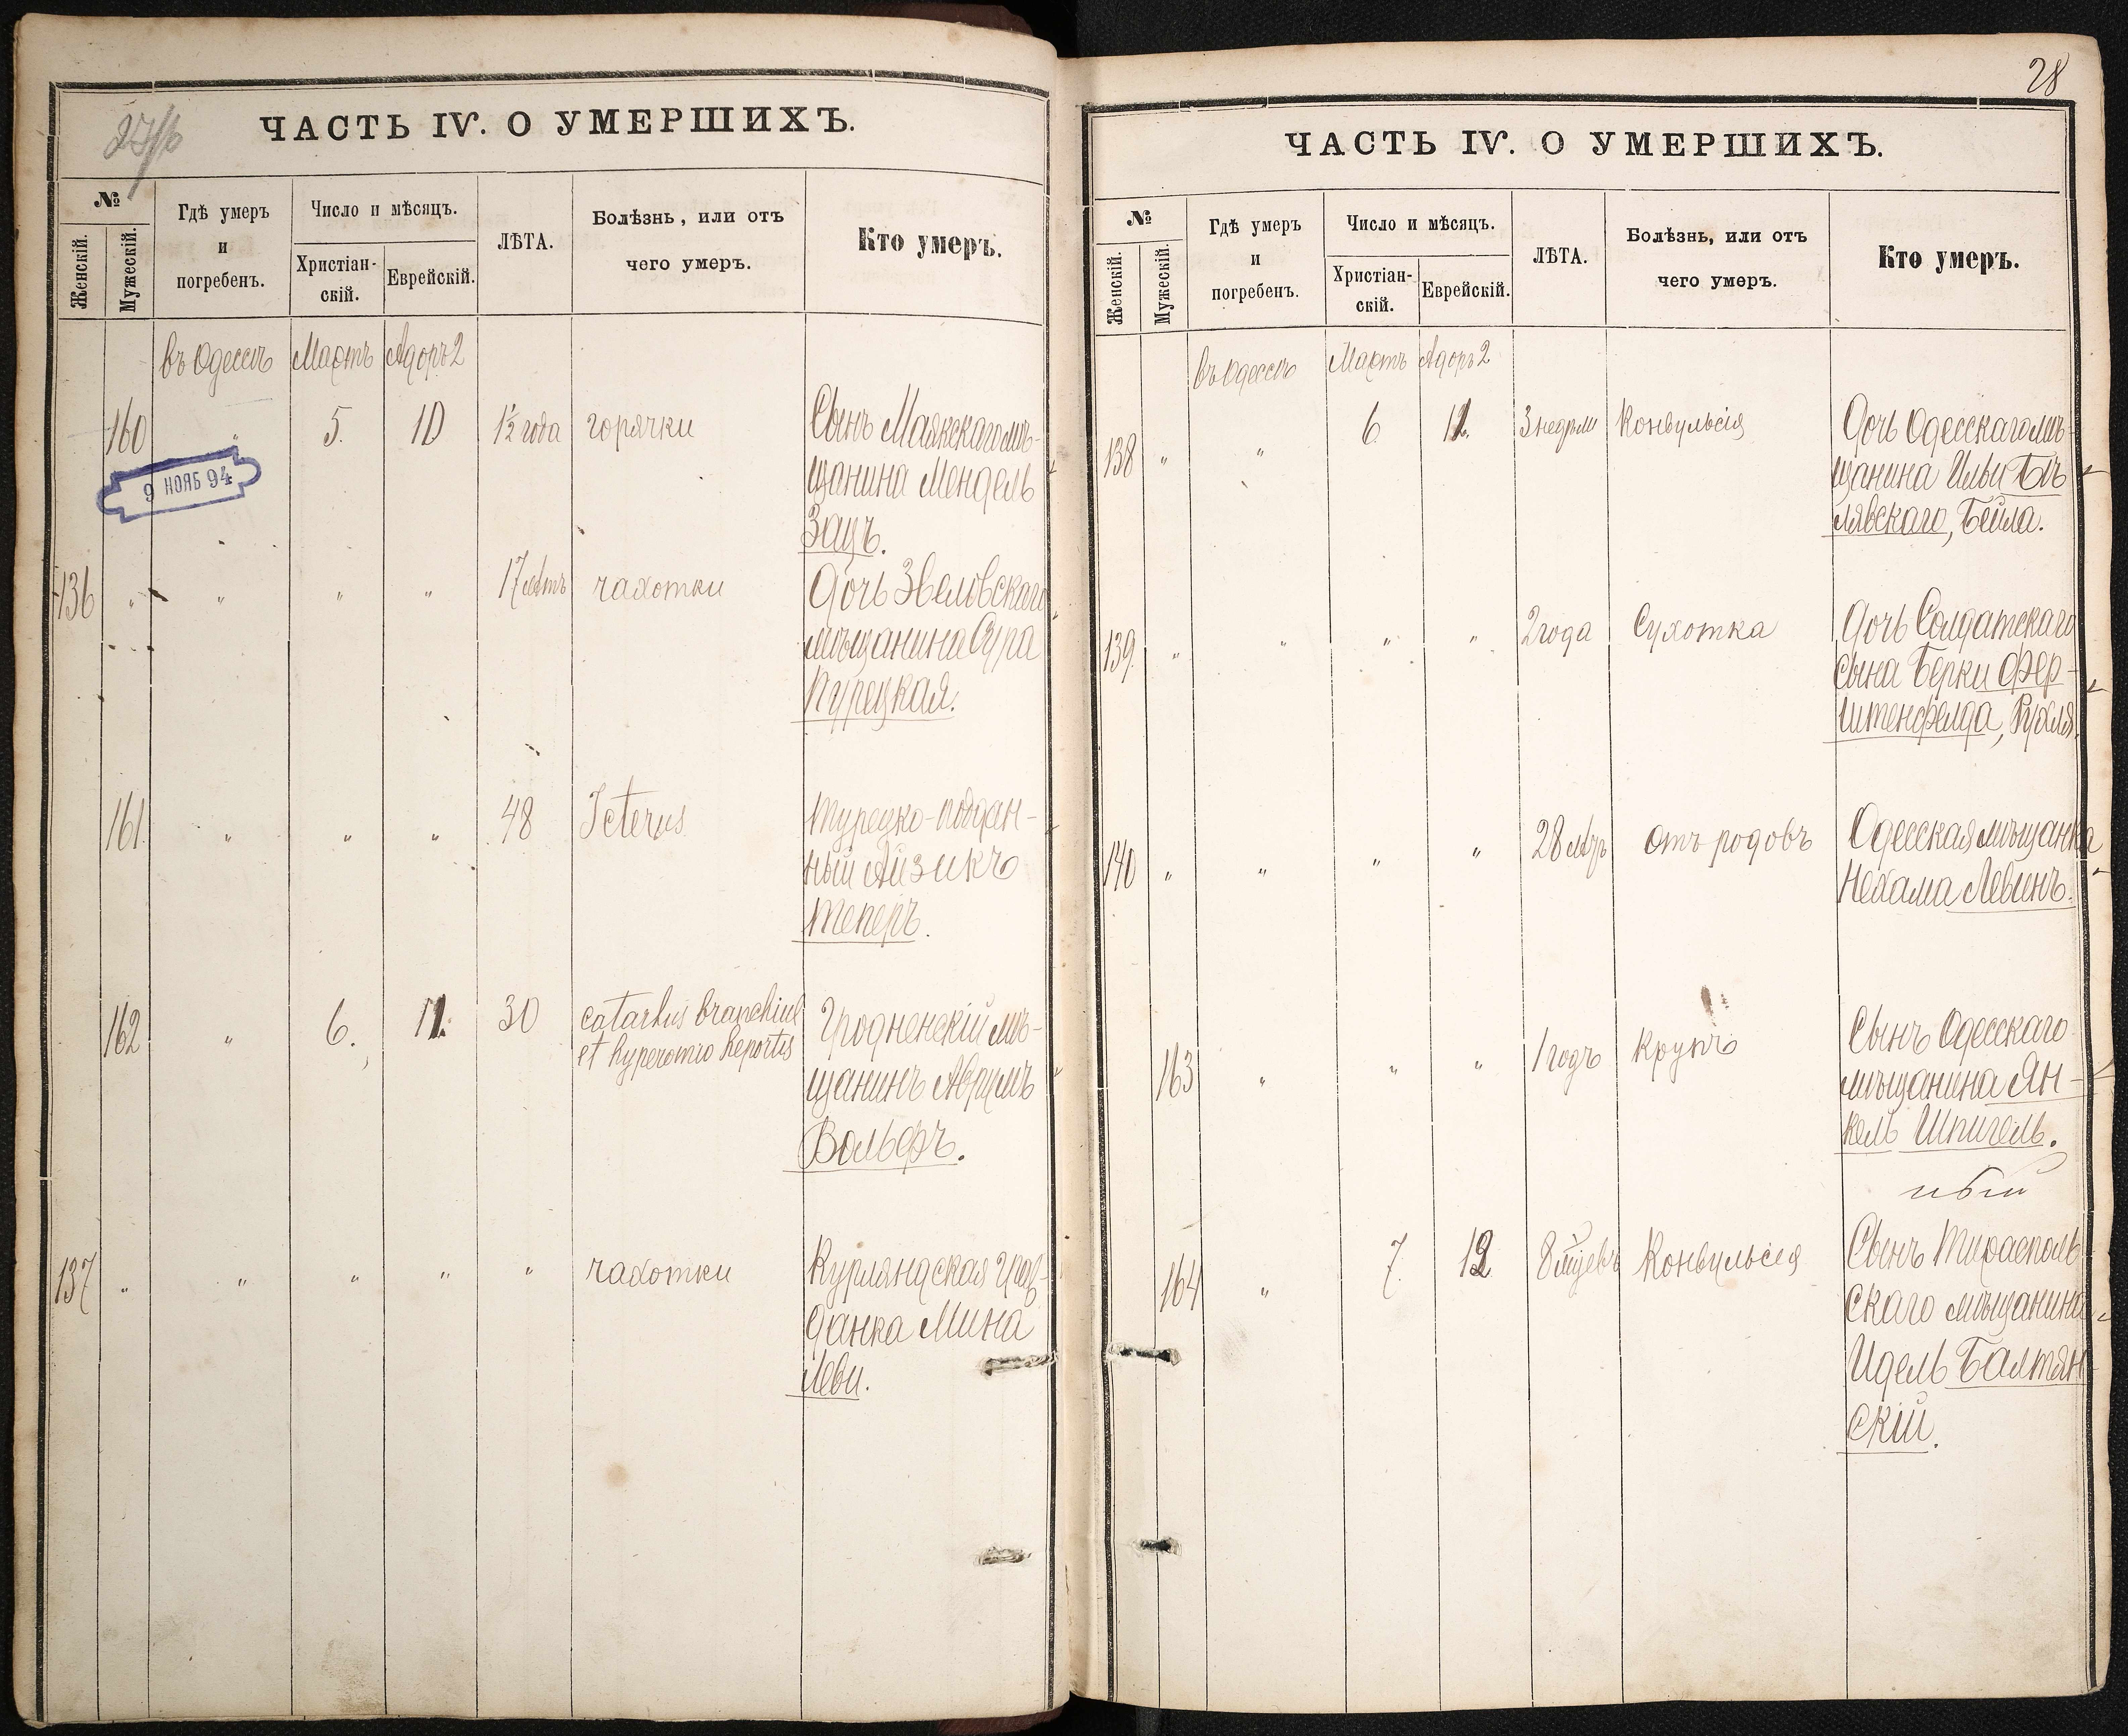 27/б
ЧАСТЬ IV. О УМЕРШИХЪ.
№
Женскій.
Мужескій.
Гдѣ умеръ
и
погребенъ.
Число и мѣсяцъ.
Христіан-
скій.
Еврейскій.
ЛѢТА.
Болѣзнь, или отъ
чего умеръ.
Кто умеръ.
въ Одессѣ Мартъ Адоръ 2
160 " 5. 10 1½ года горячки Сынъ Маякскаго мѣ-
щанина Мендель
Зацъ.
9 НОЯБ 94
136 " " " " 17 лѣтъ чахотки Дочь
мѣщанина Сура
Пурецкая.
161 " " " 48 Icterus Турецко-поддан-
ный Айзикъ
Теперъ.
162 " 6. 11. 30 Гродненскій мѣ-
et щанинъ Аврумъ
Вольфъ.
137 " " " " " чахотки Курляндская граж-
данка Мина
Леви.
28
ЧАСТЬ IV. О УМЕРШИХЪ.
№
Женскій.
Мужескій.
Гдѣ умеръ
и
погребенъ.
Число и мѣсяцъ.
Христіан-
скій.
Еврейскій.
ЛѢТА.
Болѣзнь, или отъ
чего умеръ.
Кто умеръ.
въ Одессѣ Мартъ Адоръ 2
138 " " 6 11. 3 недѣли Конвульсія Дочь Одесскаго мѣ-
щанина Ильи Бѣ-
лявскаго, Бейла.
139. " " " " 2 года Сухотка Дочь Солдатскаго
сына Берки Фер-
штенфелда, Рухля.
140 " " " " 28 лѣтъ отъ родовъ Одесская мѣщанка
Нехама Левинъ.
163 " " " 1 годъ Крупъ Сынъ Одесскаго
мѣщанина Ян-
кель Шпигель.
ный
164 " 7. 12 8 мѣсцевъ Конвульсія Сынъ Тирасполь-
скаго мѣщанина
Идель Балтян-
скій.